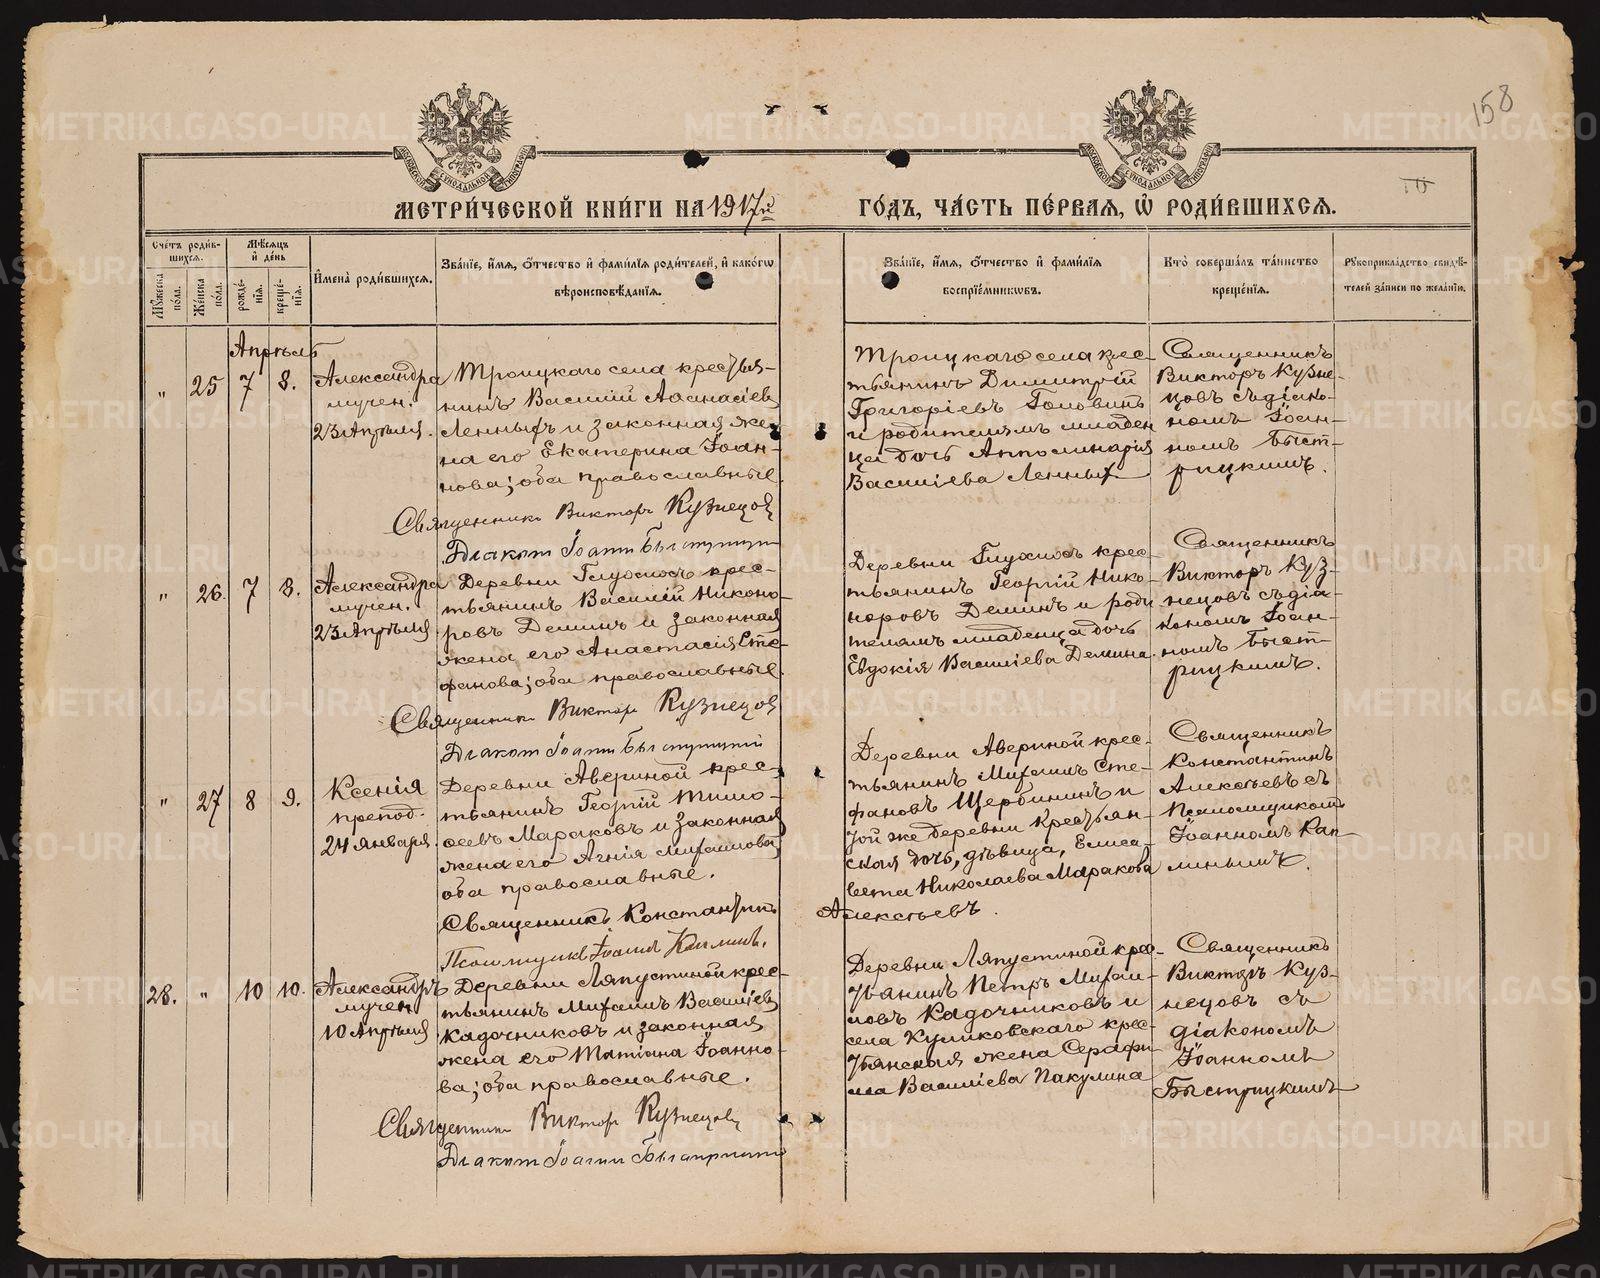 158
МЕТРИ́ЧЕСКОЙ КНИ́ГИ НА 1917й ГО́ДЪ, ЧА́СТЬ ПЕ́РВАЯ, Ѡ҆ РОДИ́ВШИХСЯ.
Сче́тъ роди́вшихся.
Мꙋ́жеска по́ла.
Же́нска по́ла.
Мѣ́сяцъ и҆ де́нь
рожде́нїя.
креще́нїя.
И҆мена̀ роди́вшихся.
Зва́нїе, и҆́мя, ѻ҆́тчество и҆ фами́лїя роди́телей, и҆ како́гѡ
вѣроисповѣ́данїя.
Зва́нїе, и҆́мя, ѻ҆́тчество и҆ фами́лїя
воспрїе́мникѡвъ.
Кто̀ соверша́лъ та́инство
креще́нїя.
Рꙋкоприкла́дство свидѣ́-
телей за́писи по жела́нїю.
Апрѣль
" 25 7 8.
Александра
мучен.
23 Апрѣля.
Троицкаго села крестья-
нинъ Василій Аѳанасіевъ
Ленныхъ и законная же-
на его Екатерина Іоан-
нова; оба православные.
Священникъ Викторъ Кузнецовъ
Діаконъ Іоаннъ Быстрицкій
Троицкаго села крес-
тьянинъ Димитрій
Григоріевъ Головинъ
и родителямъ младен
ца дочь Апполинарія
Василіева Ленныхъ
Священникъ
Викторъ Кузне-
цовъ съ діако-
номъ Іоан-
номъ Быст-
рицкимъ.
" 26. 7 8.
Александра
мучен.
23 Апрѣля
Деревни Глухихъ крес-
тьянинъ Василій Никоно-
ровъ Деминъ и законная
жена его Анастасія Сте-
фанова; оба православные.
Священникъ Викторъ Кузнецовъ
Діаконъ Іоаннъ Быстрицкій
Деревни Глухихъ крес-
тьянинъ Георгій Нико-
норовъ Деминъ и роди
телямъ младенца дочь
Евдокія Василіева Демина.
Священникъ
Викторъ Куз-
нецовъ съ діа-
кономъ Іоан-
номъ Быст-
рицкимъ.
" 27 8 9.
Ксенія
препод.
24 Января.
Деревни Авериной крес-
тьянинъ Георгій Тимо-
ѳеевъ Мараковъ и законная
жена его Агнія Михаилова,
оба православные.
Священникъ Константинъ
Алексѣевъ.
Псаломщикъ Іоаннъ Каплинъ.
Деревни Авериной крес-
тьянинъ Михаилъ Сте-
фановъ Щербининъ и
той же деревни крестьян-
ская дочь, дѣвица, Елиса-
вета Николаева Маракова
Священникъ
Константинъ
Алексѣевъ съ
Псаломщикомъ
Іоанномъ Кап-
линымъ.
28. " 10 10.
Александръ
мучен.
10 Апрѣля
Деревни Ляпустиной крес-
тьянинъ Михаилъ Василіевъ
Кадочниковъ и законная
жена его Татіана Іоанно-
ва; оба православные.
Священникъ Викторъ Кузнецовъ
Діаконъ Іоаннъ Быстрицкій
Деревни Ляпустиной крес-
тьянинъ Петръ Михаи-
ловъ Кадочниковъ и
села Куликовскаго крес-
тьянская жена Серафи-
ма Василіева Пакулина
Священникъ
Викторъ Куз-
нецовъ съ
діакономъ
Іоанномъ
Быстрицкимъ
METRIKI.GASO-URAL.RU